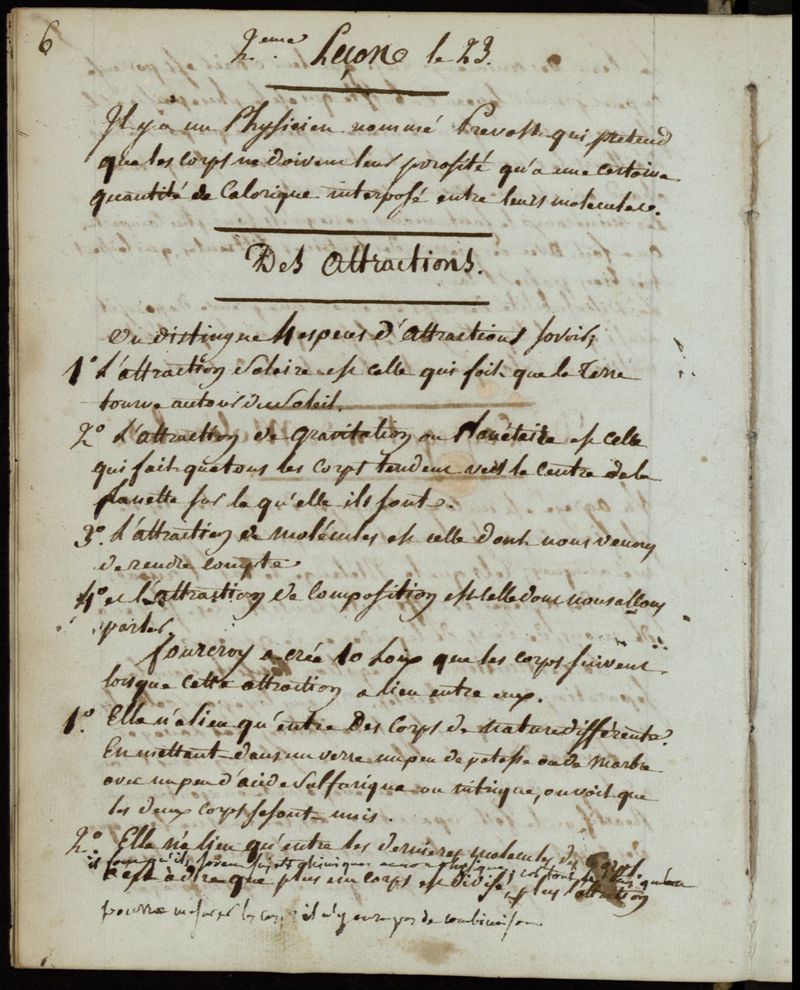 6
2.eme Leçon le 23.
Il y a un Physicien nommé Prevost qui pretend
que les corps ne doivent leur porosité qu'a une certaine
quantité de Calorique interposé entre leurs molecules.
Des attractions.
On distingue 4 especes d'attractions savoir,
1° L'attraction Solaire est celle qui fait que la Terre
tourne autour du Soleil.
2° L'attraction de gravitation ou Planétaire est celle
qui fait que tous les corps tendent vers le centre de la
planette sur la qu'elle ils sont.
3°. L'attraction de molécules est celle dont nous venons
de rendre compte
4° et L'attraction de Composition est celle dont nous allons
parler,
fourcroy a crée 10 Loix que les corps suivent
lorsque cette attraction a lieu entre eux.
1°. Elle n'a lieu qu'entre Des Corps de nature différente.
En mettant dans un verre un peu de potasse ou de Marbre
avec un peu d'acide Sulfurique ou nitrique, on voit que
les deux corps se sont unis.
2°. Elle n'a lieu qu'entre les dernieres molecules du corps.
il faut qu'ils soient
C'est a dire que plus un corps est divisé, plus l'attraction
les corps il n'y aura pas de combinaison